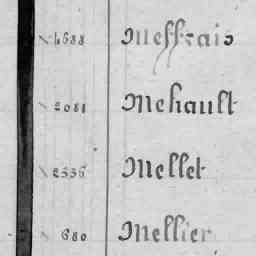 1688 Meffrais
2081 Mehault
2336 Mellet
680 Mellier